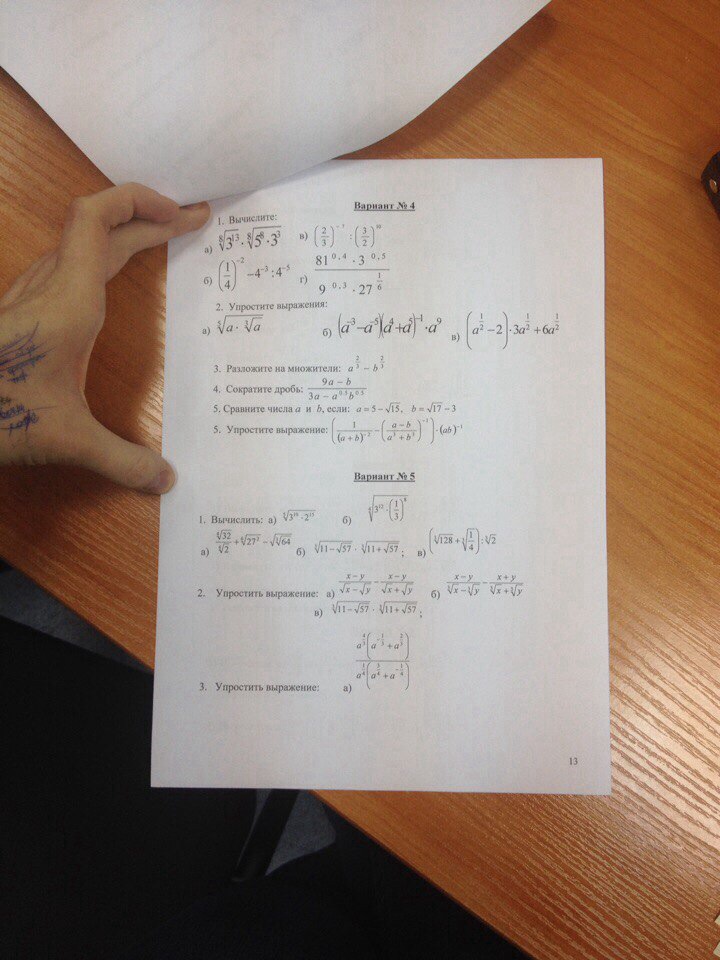 Вариант № 4
1. Вычислите:
а) \sqrt[8]{3^{13}} \cdot \sqrt[8]{5^8 \cdot 3^3} в) \left(\frac{2}{3}\right)^{-7} : \left(\frac{3}{2}\right)^{10}
б) \left(\frac{1}{4}\right)^{-2} - 4^{-3} : 4^{-5} г) \frac{81^{0,4} \cdot 3^{0,5}}{9^{0,3} \cdot 27^{\frac{1}{6}}}
2. Упростите выражения:
а) \sqrt[5]{a \cdot \sqrt[3]{a}} б) (a^{-3} - a^{-5})(a^4 + a^5)^{-1} \cdot a^9 в) \left(a^{\frac{1}{2}} - 2\right) \cdot 3a^{\frac{1}{2}} + 6a^{\frac{1}{2}}
3. Разложите на множители: a^{\frac{2}{3}} - b^{\frac{2}{3}}
4. Сократите дробь: \frac{9a - b}{3a - a^{0.5}b^{0.5}}
5. Сравните числа a и b, если: a = 5 - \sqrt{15}, b = \sqrt{17} - 3
5. Упростите выражение: \left(\frac{1}{(a+b)^{-2}} - \left(\frac{a-b}{a^3+b^3}\right)^{-1}\right) \cdot (ab)^{-1}
Вариант № 5
1. Вычислить: а) \sqrt[5]{3^{10} \cdot 2^{15}} б) \sqrt[4]{3^{12} \cdot \left(\frac{1}{3}\right)^8}
а) \frac{\sqrt[4]{32}}{\sqrt[4]{2}} + \sqrt[6]{27^2} - \sqrt{\sqrt[3]{64}} б) \sqrt[3]{11 - \sqrt{57}} \cdot \sqrt[3]{11 + \sqrt{57}} ; в) \left(\sqrt[3]{128} + \sqrt[3]{\frac{1}{4}}\right) : \sqrt[3]{2}
2. Упростить выражение: а) \frac{x-y}{\sqrt{x} - \sqrt{y}} - \frac{x-y}{\sqrt{x} + \sqrt{y}} б) \frac{x-y}{\sqrt[3]{x} - \sqrt[3]{y}} - \frac{x+y}{\sqrt[3]{x} + \sqrt[3]{y}}
в) \sqrt[3]{11 - \sqrt{57}} \cdot \sqrt[3]{11 + \sqrt{57}} ;
3. Упростить выражение: а) \frac{a^{\frac{4}{3}}\left(a^{-\frac{1}{3}} + a^{\frac{2}{3}}\right)}{a^{\frac{1}{4}}\left(a^{\frac{3}{4}} + a^{-\frac{1}{4}}\right)}
13